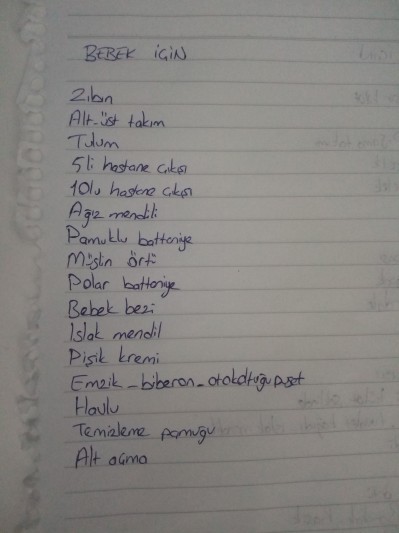 BEBEK İÇİN
Zıbın
Alt-üst takım
Tulum
5li hastane çıkışı
10lu hastane çıkışı
Ağız mendili
Pamuklu battoniye
Müslin örtü
Polar battoniye
Bebek bezi
Islak mendil
Pişik kremi
Emzik-biberon-otokoltuğu puset
Havlu
Temizleme pamuğu
Alt açma